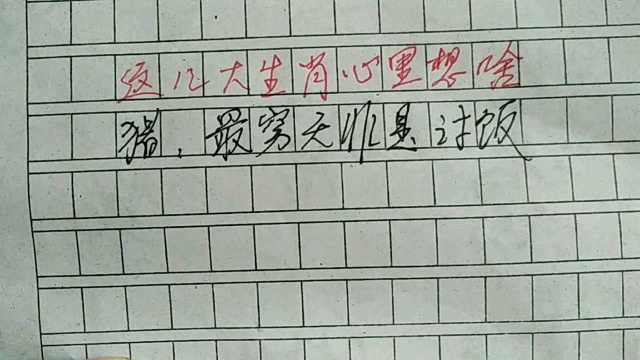 这几大生肖心里想啥
猪、最穷无非是讨饭